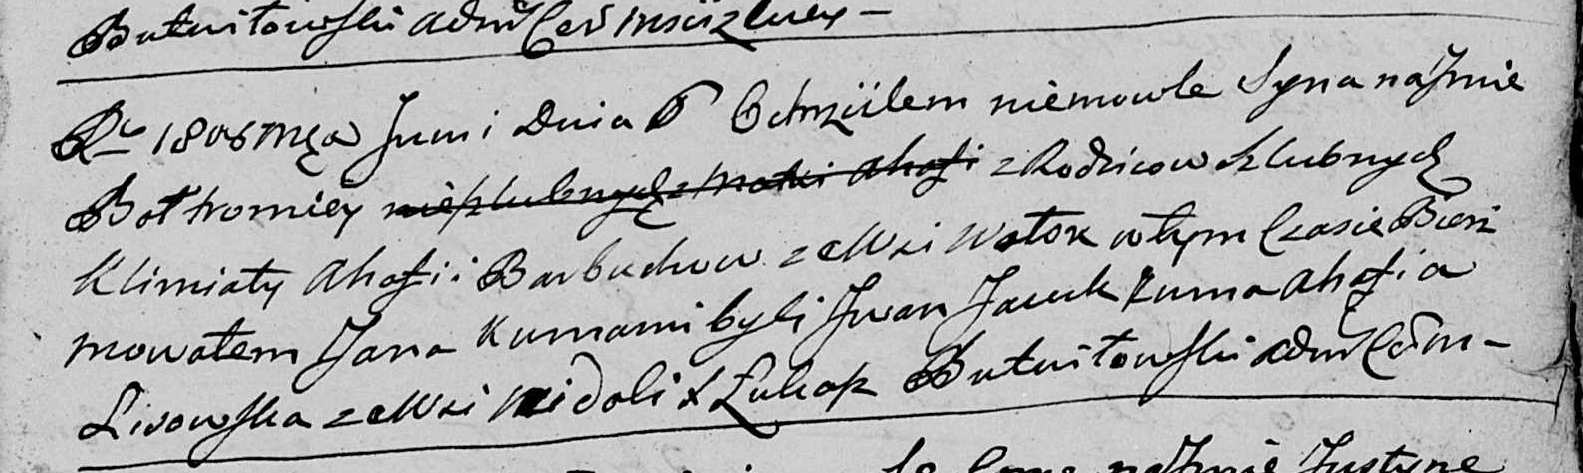 Butwiłowski adm
Ru 1806 mca Juni Dnia 6 Ochrzciłem niemowle Syna náJmie
Bołtromiey nieslubnych z Matki Ahafi z Rodzicow slubnych
Klimiaty Ahafii Barbuchow ze Wsi Wstok w tym Czasie Bierz
mowałem Jana Kumami byli Jwan Jacuk Kuma Ahafia
Lisowska ze Wsi Nidoli X Łukasz Butwiłowski adm
náJmie Justyne